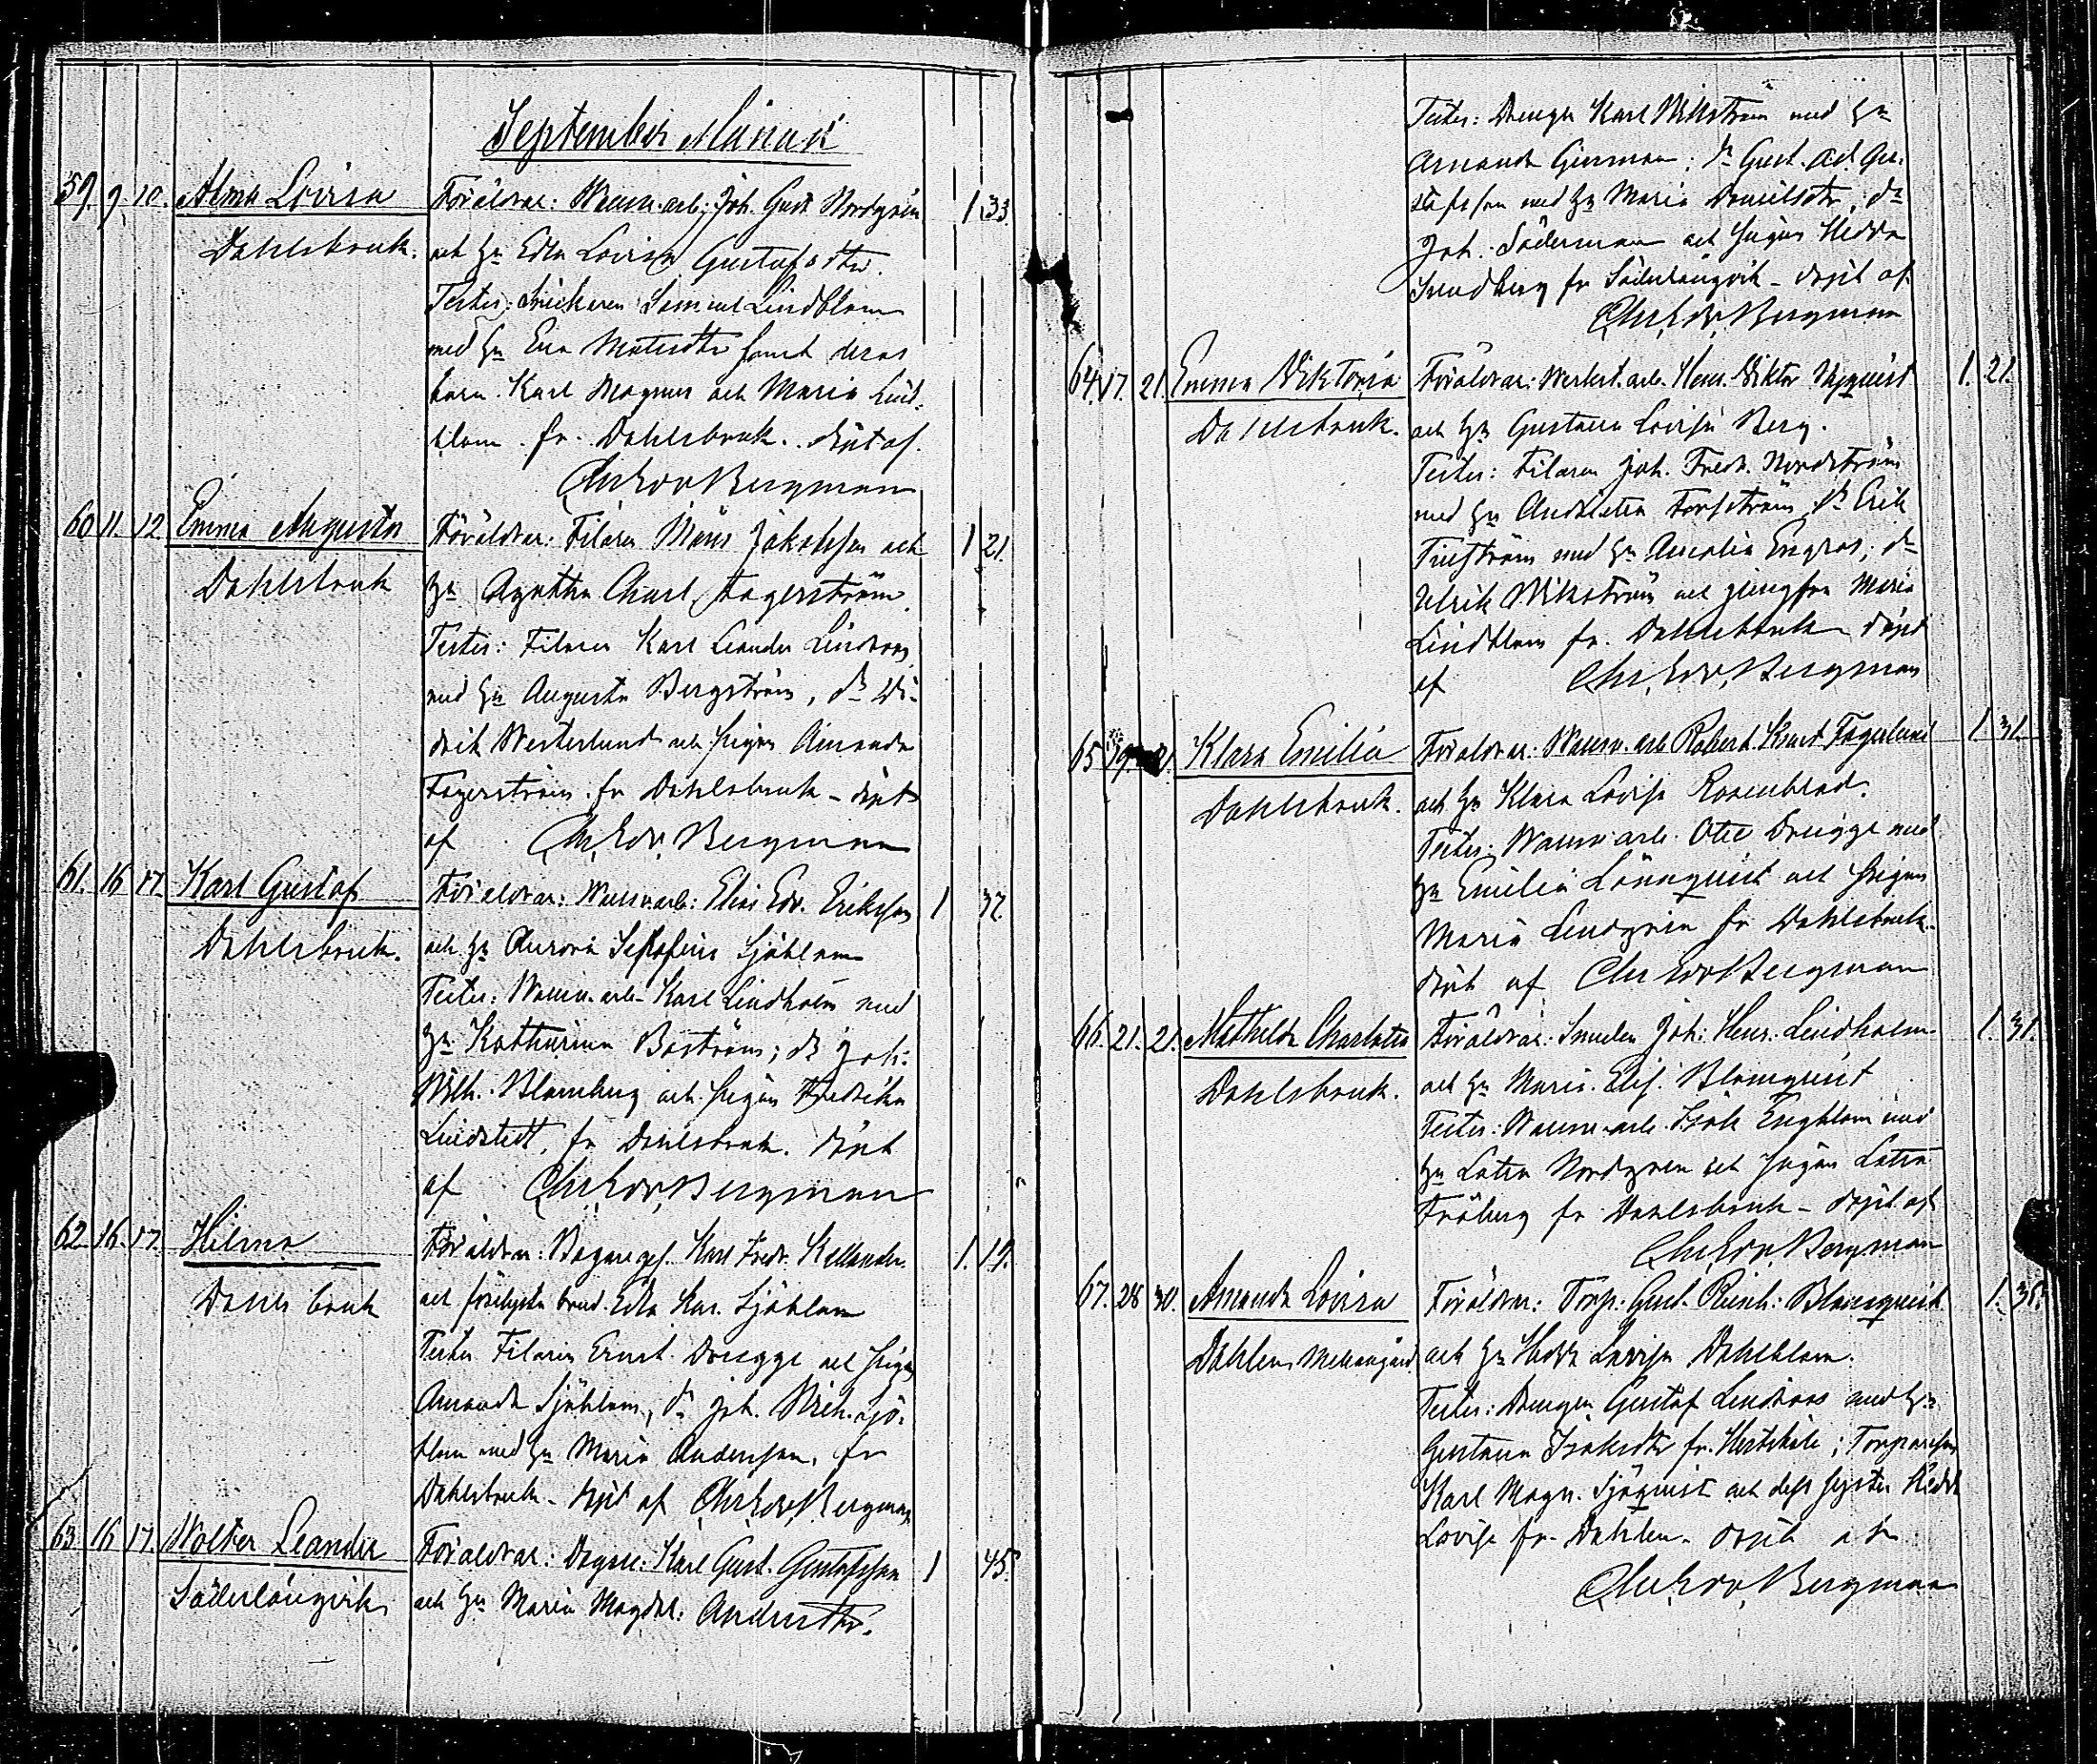 September Månad
59. 9. 10. Alma Lovisa Föräldrar: Masun. arb: Joh. Gust Nordgrén 1 33.
Dahlsbruk. och Hu Edla Lovisa Gustafsdtr.
Testes: Snickaren Samuel Lindblom
med Hu Eva Matsdtr samt deras
barn Karl Magnus och Maria Lind-
blom fr. Dahlsbruk. döpt af
Chr. Edv. Bergman
60 11. 12. Emma Augusta Föräldrar: Filaren Måns Jakobsson och 1 21.
Dahlsbruk Hu Agatha Charl. Fagerström
Testes: Filaren Karl Leander Lindroos
med Hu Augusta Bergström, do Di-
drik Westerlund och pigan Amanda
Fagerström fr Dahlsbruk - döpt
af Chr. Edv. Bergman
61. 16 17. Karl Gustaf Föräldrar: Masun. arb: Elias Edv. Eriksson 1 37.
Dahlsbruk. och Hu Aurora Serafina Sjöblom
Testes: Masun. arb. Karl Lindholm med
Hu Katharina Boström; do Joh.
Wilh. Blomberg och pigan Fredrika
Lindstedt, fr Dahlsbruk. döpt
af Chr. Edv. Bergman
62. 16. 17. Hilma Föräldrar: Bagareges. Karl Fredr. Kellander 1. 19.
Dahlsbruk och förelyste brud Edla Kar. Sjöblom
Testes Filaren Ernst Dregge och pigan
Amanda Sjöblom, do Joh. Wilh. Sjö-
blom med Hu Maria Andersson, fr
Dahlsbruk - döpt af Chr. Edv. Bergman
63 16 17. Wolter Leander Föräldrar: Karl Gust. Gustafsson 1 45.
Söderlångvik och Hu Maria Magdal. Andersdtr.
Testes: Drengen Karl Wikström med Hu
Amanda; do Gust. Ad. Gu-
stafsson med Hu Maria Danielsdtr, do
Joh. Söderman och pigan Hedda
Sundberg fr Söderlångvik - döpt af
Chr. Edv. Bergman
64. 17. 21. Emma Viktoria Föräldrar: Werkst. arb. Henr. Viktor 1. 21.
Dahlsbruk. och Hu Gustava Lovisa Berg.
Testes: Filaren Joh. Fredr. Nordström
med Hu Forsström, do Erik
med Hu Amalia Engros, do
Ulrik Wikström och jungfru Maria
Lindblom fr. Dahlsbruk döpt
af Chr. Edv. Bergman
65 19. Klara Emilia Föräldrar: Masun. arb Robert Knut Fagerlund 1. 31.
Dahlsbruk. och Hu Klara Lovisa Rosenblad.
Testes: Masun arb. Otto Dregge med
Hu Emilia Lönnquist och pigan
Maria Lindgrén fr Dahlsbruk.
döpt af Chr Edv Bergman
66. 21. 21. Mathilda Charlotta Föräldrar: Smeden Joh. Henr. Lindholm 1. 31.
Dahlsbruk. och Hu Maria Elis. Blomquist
Testes: Masun. arb. Isak Engblom med
Hu Lotta Nordgren och pigan Lotta
Fröberg fr Dahlsbruk - döpt af
Chr. Edv. Bergman
67. 28 30. Amanda Lovisa Föräldrar: Torp. Gust. Reinh. Blomquist 1. 35.
Dahlen Mellangård och Hu Hedda Lovisa Dahlblom.
Testes: Drengen Gustaf Lindroos med Hu
Gustava Isaksdtr fr.; Torparesonen
Karl Magn. Sjöquist och dess syster Hedda
Lovisa fr Dahlen - döpt af
Chr. Edv. Bergman